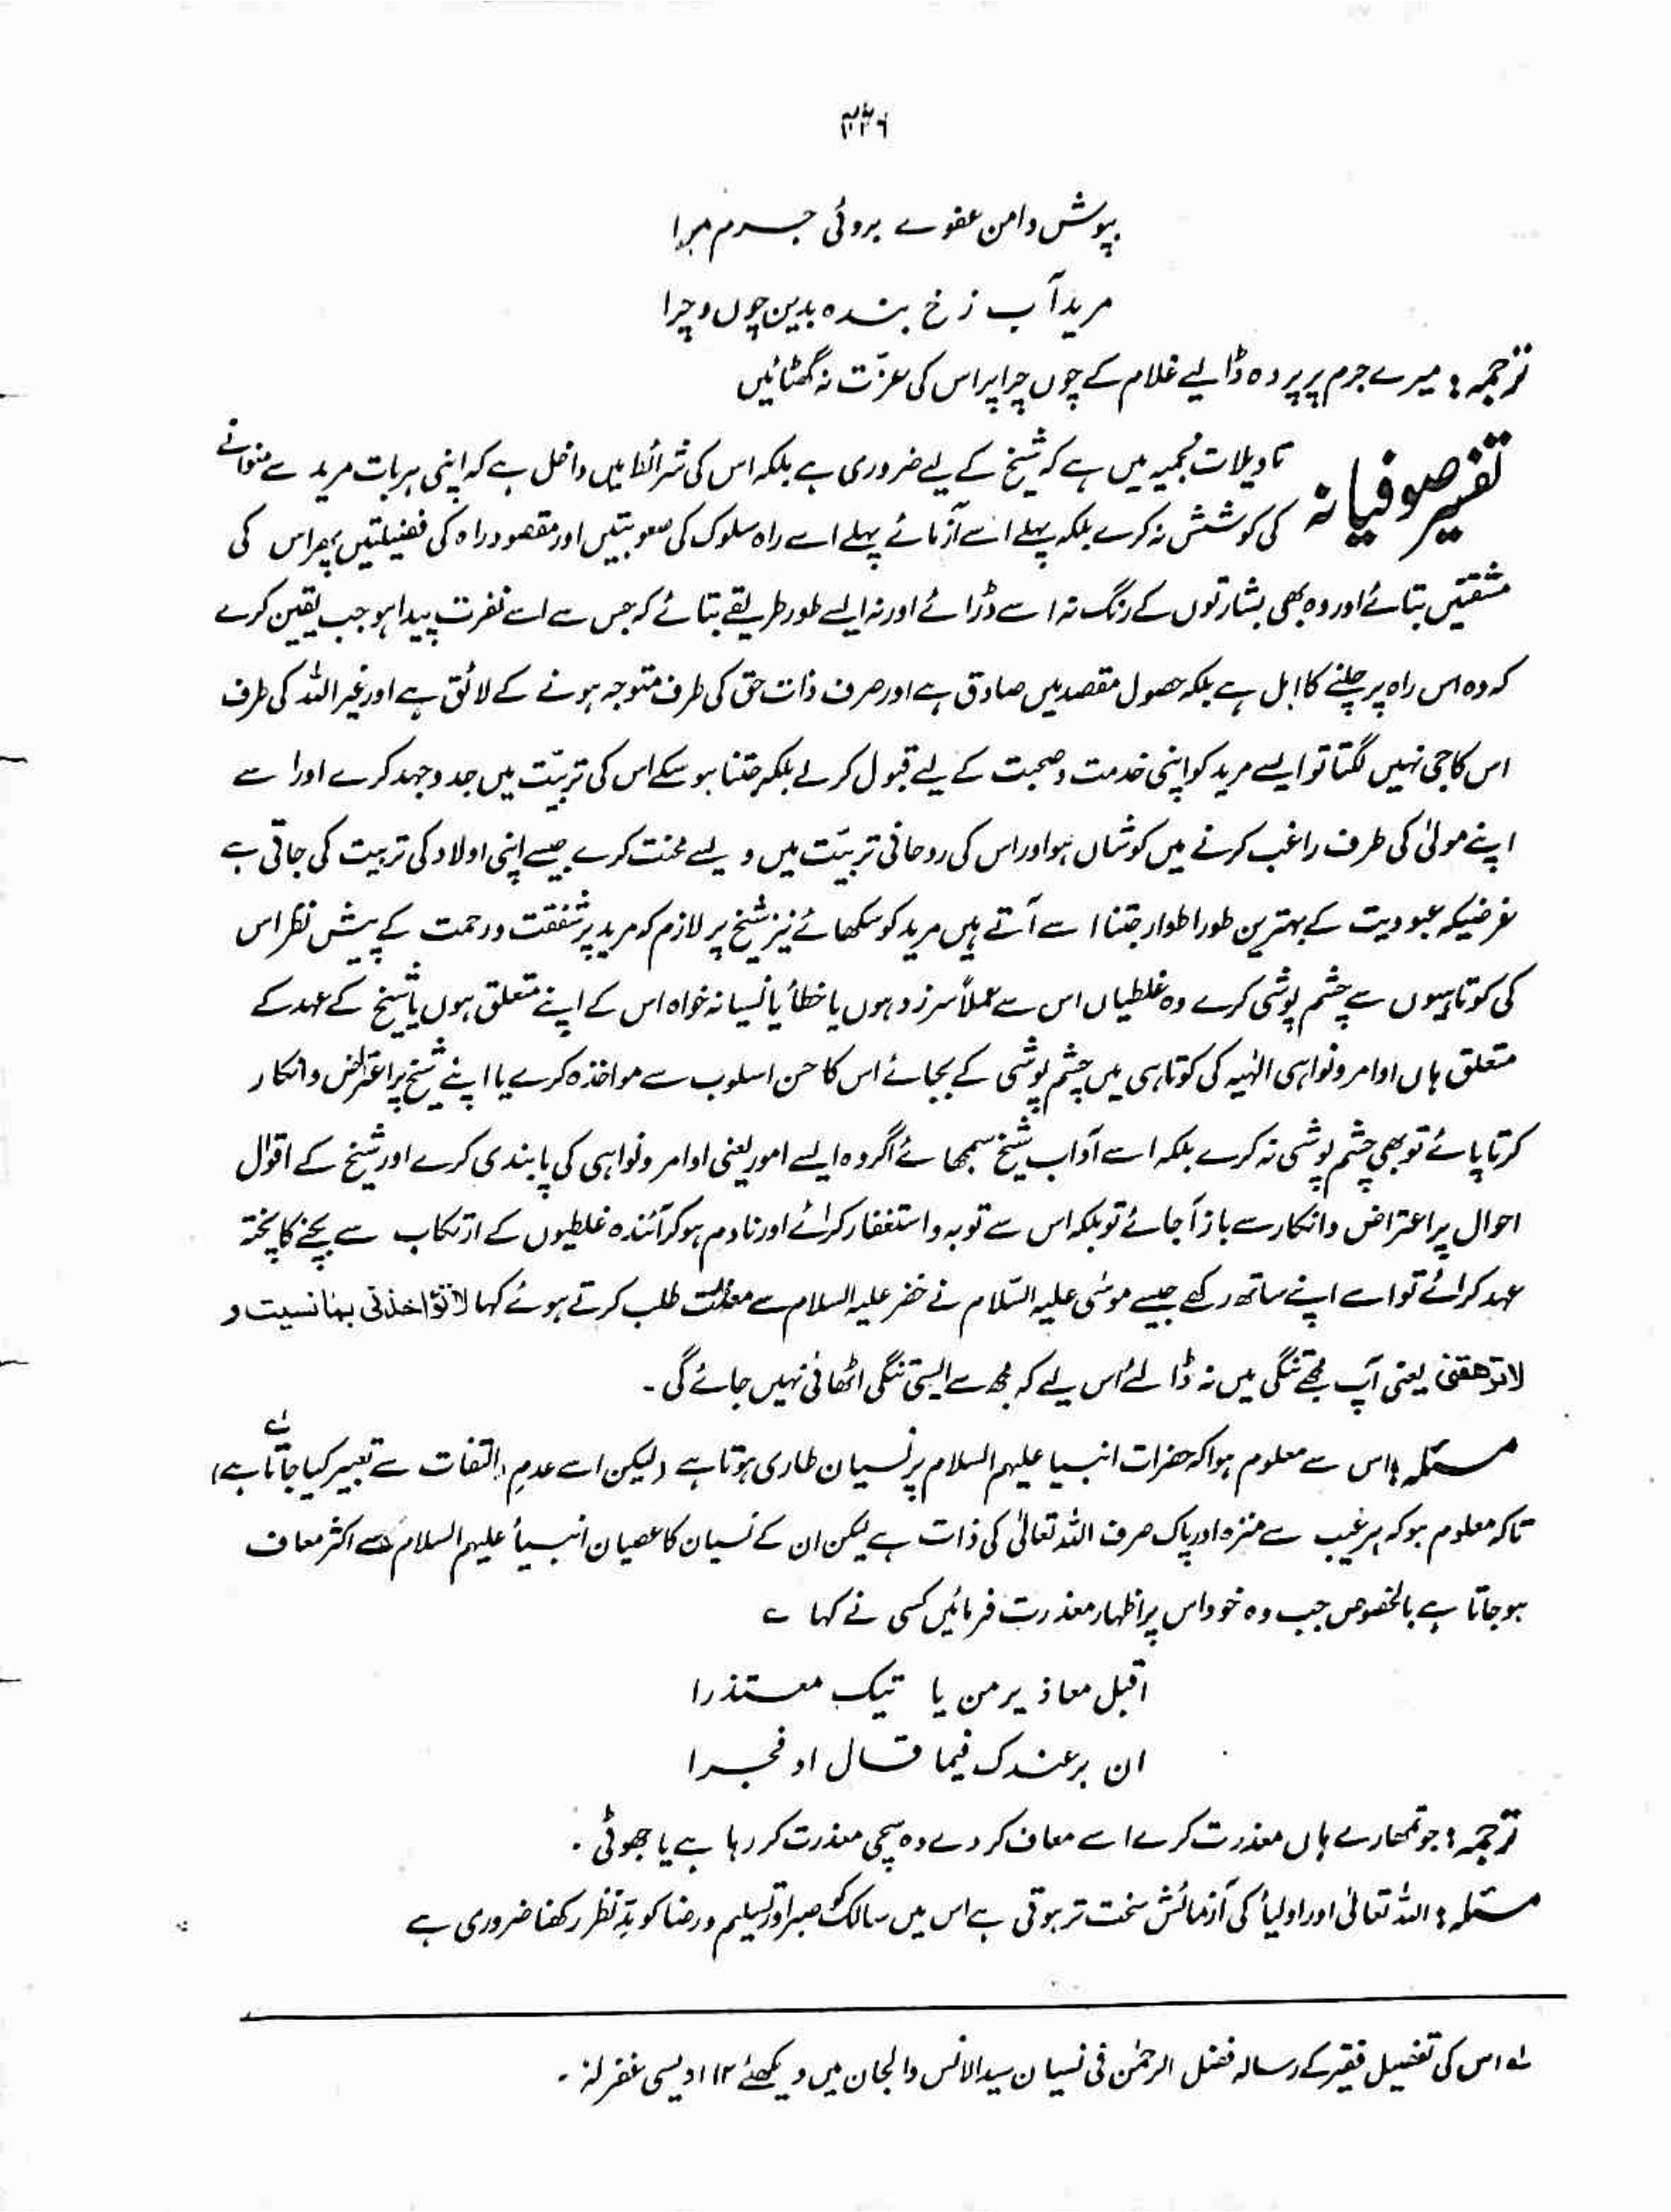 ۳۳۶
بپوش دامن عفوے بروئی جرم مرا
مریدآب زخ بندہ بدین چوں وچرا
ترجمہ : میرے جرم پر پردہ ڈالیے غلام کے چوں چرا پر اس کی عزّت نہ گھٹائیں
تفسیر صوفیانہ
تاویلات نجمیہ میں ہے کہ شیخ کے لیے ضروری ہے بلکہ اس کی شرائط میں داخل ہے کہ اپنی ہر بات مرید سے منوانے
کی کوشش نہ کرے بلکہ پہلے اسے آزمائے پہلے اسے راہ سلوک کی صعوبتیں اور مقصود راہ کی فضیلتیں پھر اس کی
مشقتیں بتائے اور وہ بھی بشارتوں کے رنگ نہ اسے ڈرائے اور نہ ایسے طور طریقے بتائے کہ جس سے اسے نفرت پیدا ہو جب یقین کرے
کہ وہ اس راہ پر چلنے کا اہل ہے بلکہ حصول مقصد میں صادق ہے اور صرف ذات حق کی طرف متوجہ ہونے کے لائق ہے اور غیر اللہ کی طرف
اس کا جی نہیں لگتا تو ایسے مرید کو اپنی خدمت وصحبت کے لیے قبول کر لے بلکہ جتنا ہو سکے اس کی تربیّت میں جدوجہد کرے اور اسے
اپنے مولیٰ کی طرف راغب کرنے میں کوشاں ہو اور اس کی روحانی تربیّت میں ویسے محنت کرے جیسے اپنی اولاد کی تربیت کی جاتی ہے
غرضیکہ عبودیت کے بہترین طور اطوار جتنا اسے آتے ہیں مرید کو سکھائے نیز شیخ پر لازم کہ مرید پر شفقت ورحمت کے پیش نظر اس
کی کوتاہیوں سے چشم پوشی کرے وہ غلطیاں اس سے عملاً سرزد ہوں یا خطأ یا نسیانہ خواہ اس کے اپنے متعلق ہوں یا شیخ کے عہد کے
متعلق ہاں اوامر ونواہی الٰہیہ کی کوتاہی میں چشم پوشی کے بجائے اس کا حسن اسلوب سے مواخذہ کرے یا اپنے شیخ پر اعتراض وانکار
کرتا پائے تو بھی چشم پوشی نہ کرے بلکہ اسے آداب شیخ سمجھائے اگر وہ ایسے امور یعنی اوامر ونواہی کی پابندی کرے اور شیخ کے اقوال
احوال پر اعتراض وانکار سے باز آجائے تو بلکہ اس سے توبہ واستغفار کرائے اور نادم ہو کر آئندہ غلطیوں کے ارتکاب سے بچنے کا پختہ
عہد کرائے تو اسے اپنے ساتھ رکھے جیسے موسٰی علیہ السّلام نے خضر علیہ السلام سے معذرت طلب کرتے ہوئے کہا لا تؤاخذنی بما نسیت و
لا ترھقنی یعنی آپ مجھے تنگی میں نہ ڈالئے اس لیے کہ مجھ سے ایسی تنگی اٹھائی نہیں جائے گی ۔
مسئلہ : اس سے معلوم ہوا کہ حضرات انبیا علیہم السلام پر نسیان طاری ہوتا ہے (لیکن اسے عدمِ التفات سے تعبیر کیا جاتا ہے) لے
تاکہ معلوم ہو کہ ہر عیب سے منزہ اور پاک صرف اللہ تعالیٰ کی ذات ہے لیکن ان کے نسیان کا عصیان انبیأ علیہم السلام سے اکثر معاف
ہو جاتا ہے بالخصوص جب وہ خود اس پر اظہار معذرت فرمائیں کسی نے کہا ؎
اقبل معاذیر من یا تیک معتذرا
ان برعندک فیما قال او فجرا
ترجمہ : جو تمھارے ہاں معذرت کرے اسے معاف کر دے وہ سچی معذرت کر رہا ہے یا جھوٹی ۔
مسئلہ : اللہ تعالیٰ اور اولیأ کی آزمائش سخت تر ہوتی ہے اس میں سالک کو صبر اور تسلیم ورضا کو مدِّنظر رکھنا ضروری ہے
لے اس کی تفصیل فقیر کے رسالہ فضل الرحمٰن فی نسیان سید الانس والجان میں دیکھئے ۱۲ اویسی غفرلہٗ ۔